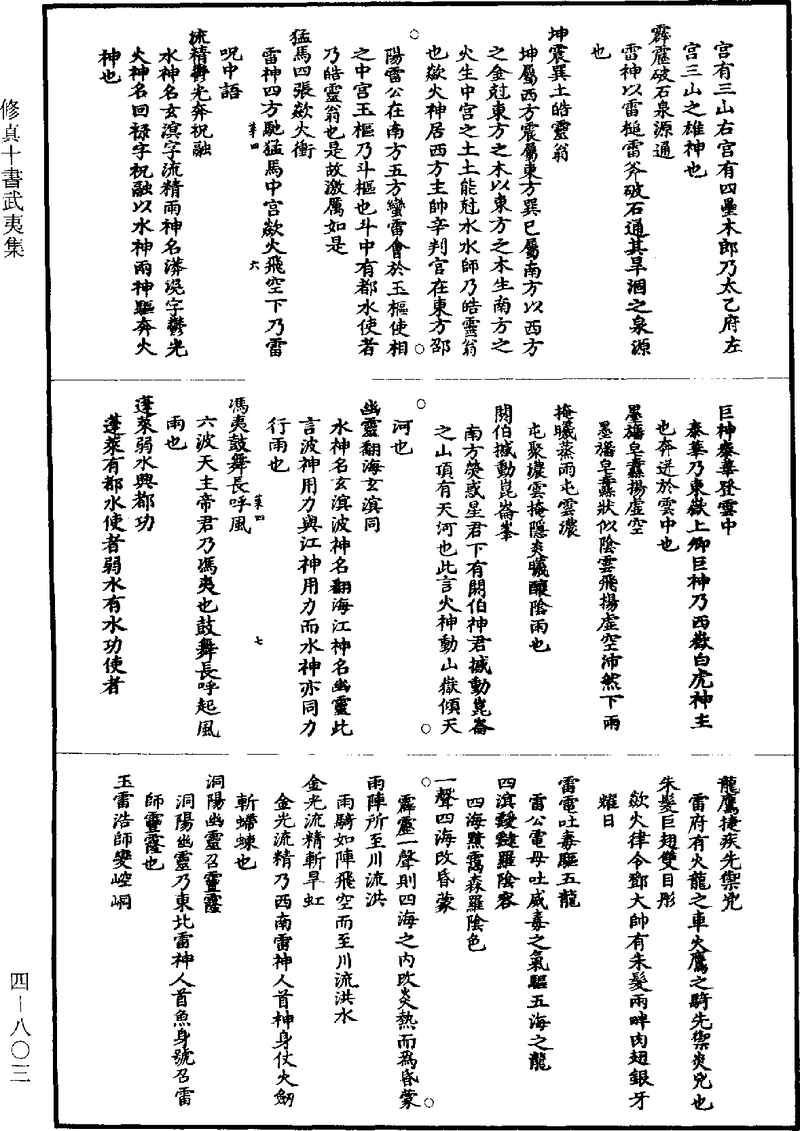 宫有三山右宫有四墨木郎乃太乙府左
宫三山之雄神也
霹靂破石泉源通
雷神以雷槌雷斧破石通其旱涸之泉源
也
坤震巽土皓靈翁
坤屬西方震屬東方巽巳屬南方以西方
之金尅東方之木以東方之木生南方之
火生中宫之土土能尅水水師乃皓靈翁
也歘火神居西方主帥辛判官在東方邵
陽雷公在南方五方蠻雷會於玉樞使相
之中宫玉樞乃斗樞也斗中有都水使者
乃皓靈翁也是故激厲如是
猛馬四張歘火衝
雷神四方馳猛馬中宫歘火飛空下乃雷
第四 六
呪中語
流精鬱光奔祝融
水神名玄溟字流精雨神名漭沆字鬱光
火神名回禄字祝融以水神雨神驅奔火
神也
巨神泰華登雲中
泰華乃東嶽上卿巨神乃西嶽白虎神主
也奔迸於雲中也
墨旛皂纛揚虚空
墨旛皂纛狀似陰雲飛揚虚空沛然下雨
掩曦蒸雨屯雲濃
屯聚濃雲掩隱炎曦釀陰雨也
閼伯撼動崑崙峯
南方熒惑星君下有閼伯神君撼動崑崙
之山頂有天河也此言火神動山嶽傾天
河也
幽靈翻海玄溟同
水神名玄溟波神名翻海江神名幽靈此
言波神用力與江神用力而水神亦同力
行雨也
第四 七
馮夷鼓舞長呼風
六波天主帝君乃馮夷也鼓舞長呼起風
雨也
蓬萊弱水興都功
蓬萊有都水使者弱水有水功使者
龍鷹捷疾先禦兇
雷府有火龍之車火鷹之騎先禦炎兇也
朱髮巨翅雙目彤
歘火律令鄧大帥有朱髮兩畔肉翅銀牙
耀日
雷電吐毒驅五龍
雷公電母吐威毒之氣驅五海之龍
四溟靉靆羅陰容
四海黳靄森羅陰色
一聲四海改昏蒙
霹靂一聲則四海之内改炎熱而為昏蒙
雨陣所至川流洪
雨騎如陣飛空而至川流洪水
金光流精斬旱虹
金光流精乃西南雷神人首神身仗火劒
斬螮蝀也
洞陽幽靈召靈霳
洞陽幽靈乃東北雷神人首魚身號召雷
師靈霳也
玉雷浩師變崆峒
修真十書武夷集
四—八〇三